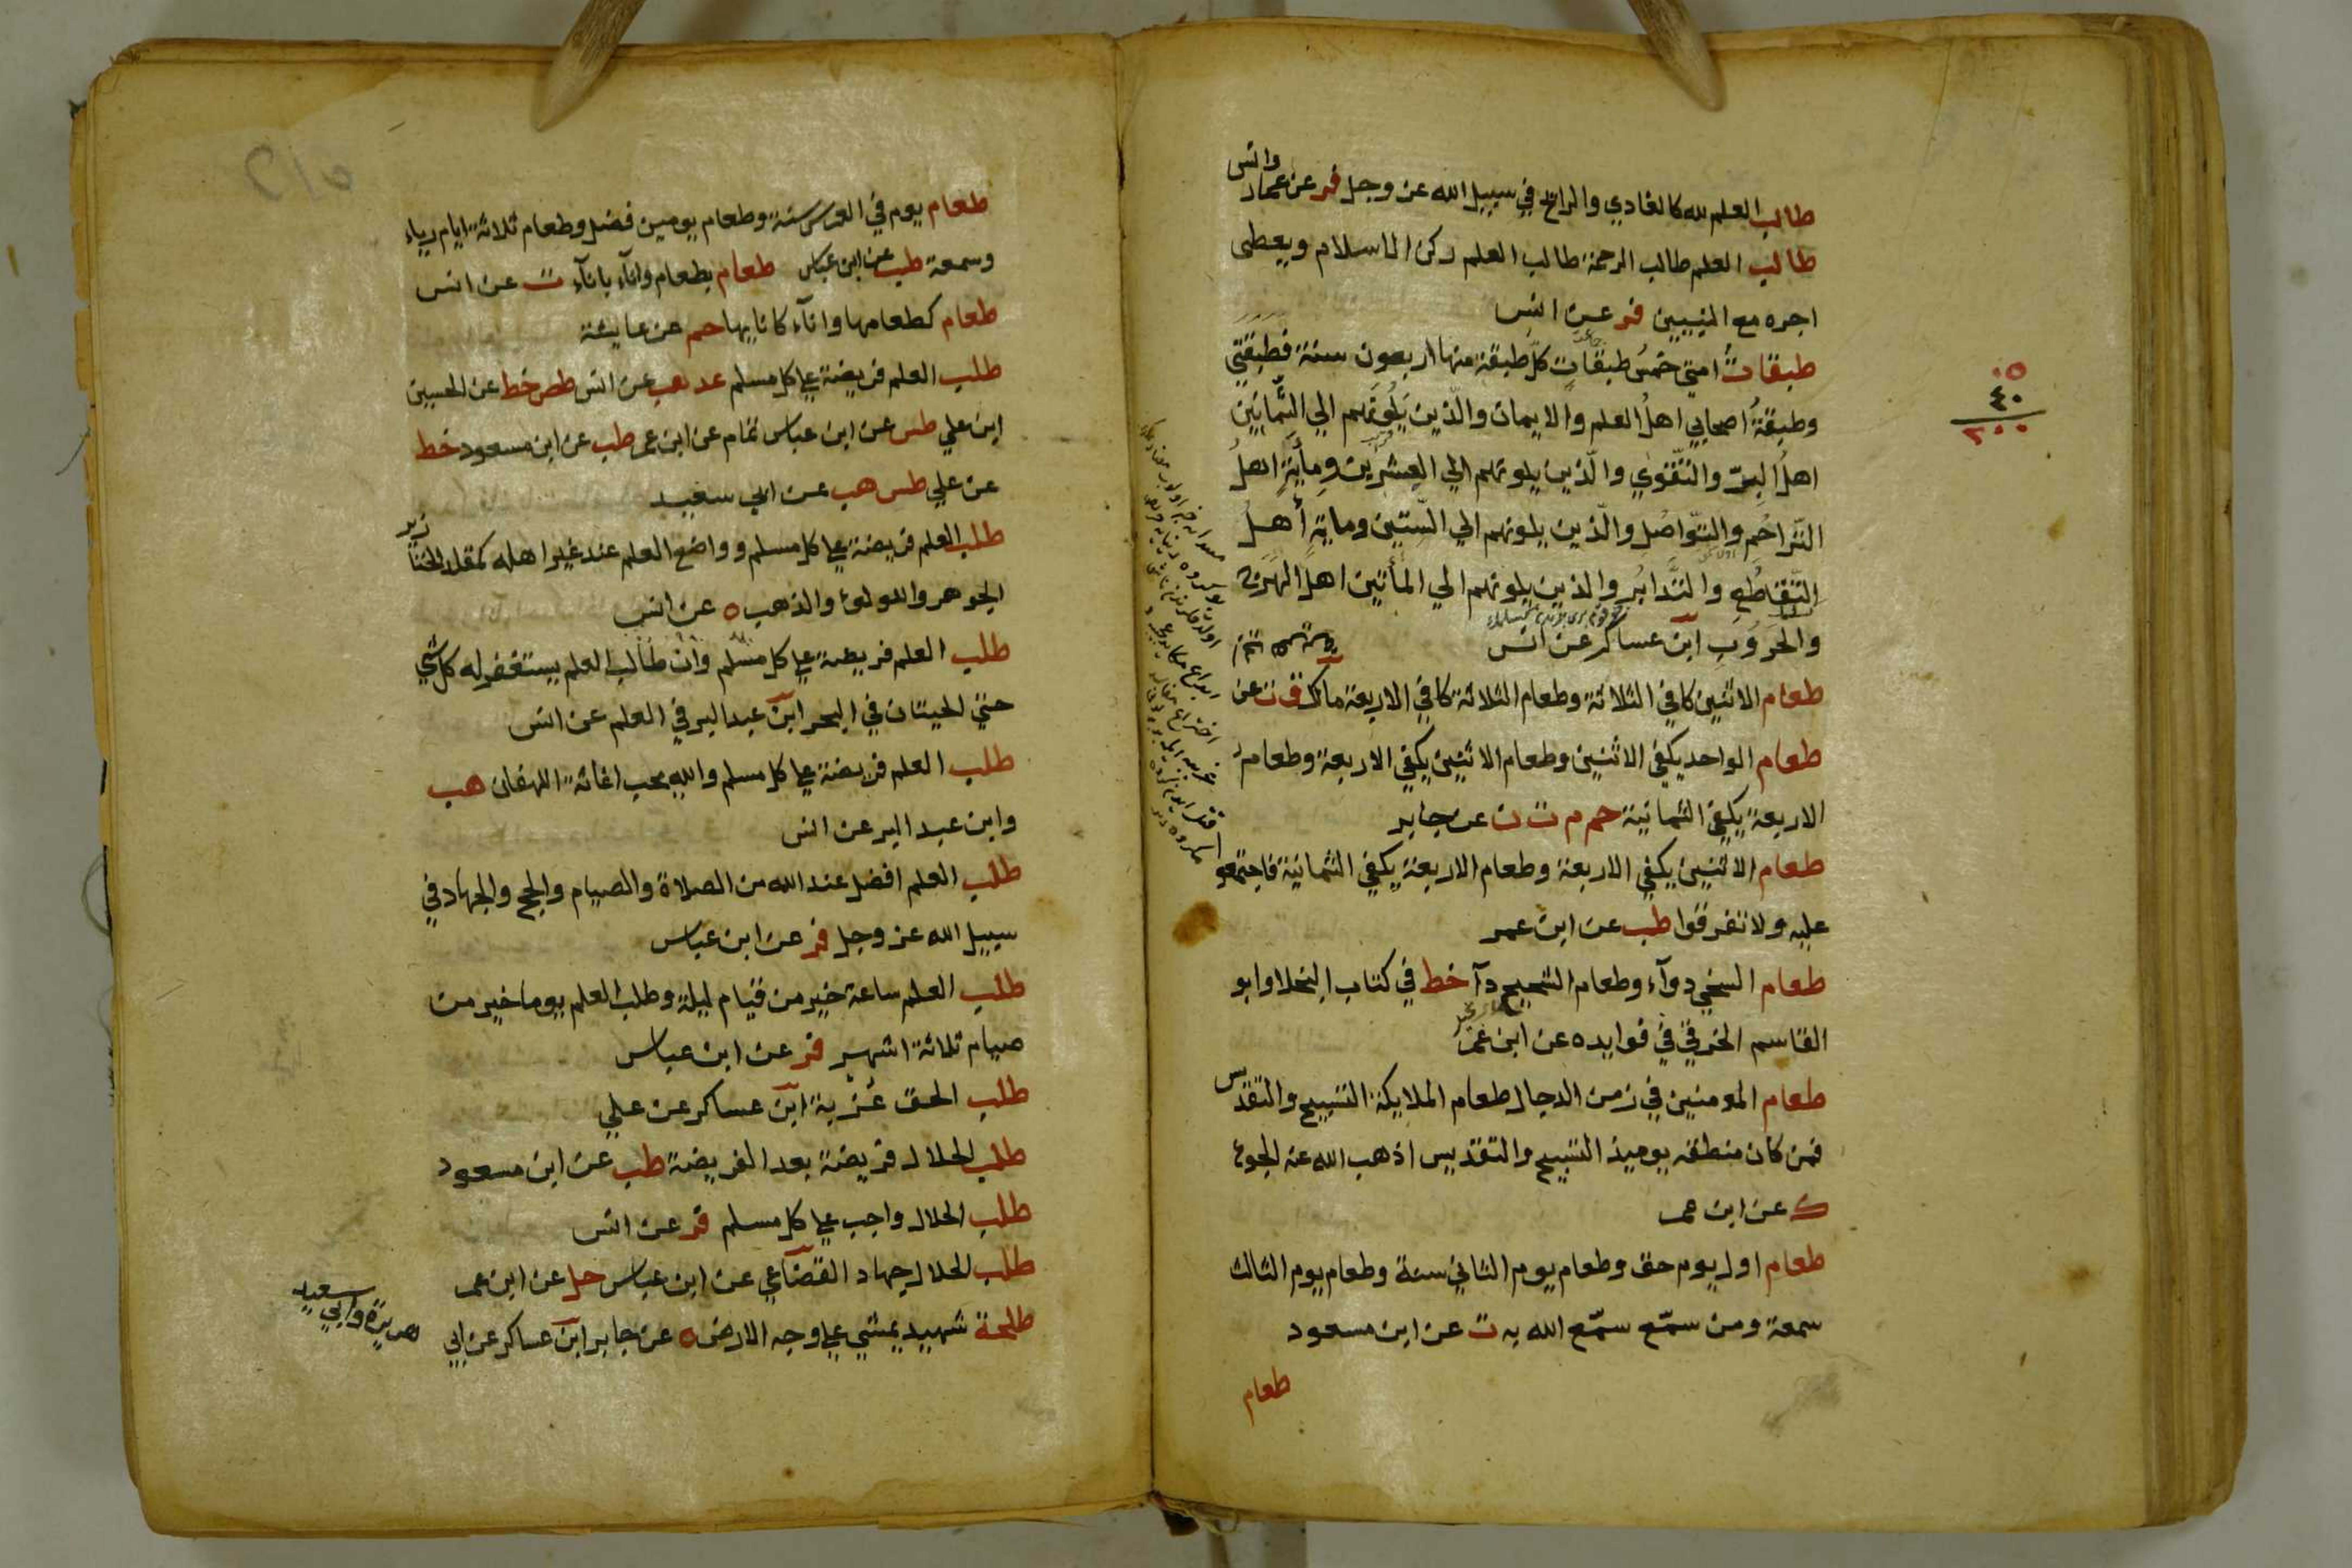 وانس
طالب العلم لله كالغادي والرائح في سبيل الله عز وجل فر عن عمار
طالب العلم طالب الرحمة طالب العلم ركن الاسلام ويعطى
اجره مع النبيين فر عن انس
طبقات امتي خمس طبقات كل طبقة منها اربعون سنة فطبقتي
وطبقة اصحابي اهل العلم والايمان والذين يلونهم الي الثمانين
اهل البر والتقوي والذين يلونهم الي العشرين ومأية اهل
التراحم والتواصل والذين يلونهم الي الستين وماية أهل
التقاطع والتدابر والذين يلونهم الي المأتين اهل الهرج
والحروب ابن عساكر عن انس
طعام الاثنين كافي الثلاثة وطعام الثلاثة كافي الاربعة مالك ق ت عن
طعام الواحد يكفي الاثنين وطعام الاثنين يكفي الاربعة وطعام
الاربعة يكفي الثمانية حم م ت ن عن جابر
طعام الاثنين يكفي الاربعة وطعام الاربعة يكفي الثمانية فاجتمعو
عليه ولا تفرقوا طب عن ابن عمر
طعام السخي دوآء وطعام الشحيح دآ خط في كتاب البخلا وابو
القاسم الخرقي في فوايده عن ابن عمر
طعام المومنين في زمن الدجال طعام الملايكة التسبيح والتقديس
فمن كان منطقه يوميذ التسبيح والتقديس اذهب الله عنه الجوع
ك عن ابن عمر
طعام اول يوم حق وطعام يوم الثاني سنة وطعام يوم الثالث
سمعة ومن سمّع سمّع الله به ت عن ابن مسعود
طعام
٥
٤٠
٢٠٠
طعام يوم في العرس سنة وطعام يومين فضل وطعام ثلاثة ايام رياء
وسمعة طب عن ابن عباس طعام بطعام وانآء بانآء ت عن انس
طعام كطعامها وانآء كانايها حم عن عايشة
طلب العلم فريضة علي كل مسلم عد هب عن انس طص خط عن الحسين
ابن علي طس عن ابن عباس تمام عن ابن عمر طب عن ابن مسعود خط
عن علي طس هب عن ابي سعيد
طلب العلم فريضة علي كل مسلم وواضع العلم عند غير اهله كمقلد الخنازير
الجوهر واللولؤ والذهب ه عن انس
طلب العلم فريضة علي كل مسلم وان طالب العلم يستغفر له كل شي
حتي الحيتان في البحر ابن عبد البر في العلم عن انس
طلب العلم فريضة علي كل مسلم والله يحب اغاثة اللهفان هب
وابن عبد البر عن انس
طلب العلم افضل عند الله من الصلاة والصيام والحج والجهاد في
سبيل الله عز وجل فر عن ابن عباس
طلب العلم ساعة خير من قيام ليلة وطلب العلم يوما خير من
صيام ثلاثة اشهر فر عن ابن عباس
طلب الحق غربة ابن عساكر عن علي
طلب الحلال فريضة بعد الفريضة طب عن ابن مسعود
طلب الحلال واجب علي كل مسلم فر عن انس
طلب الحلال جهاد القضاعي عن ابن عباس حل عن ابن عمر
طلحة شهيد يمشي علي وجه الارض ه عن جابر ابن عساكر عن ابي
هريرة وابي سعيد